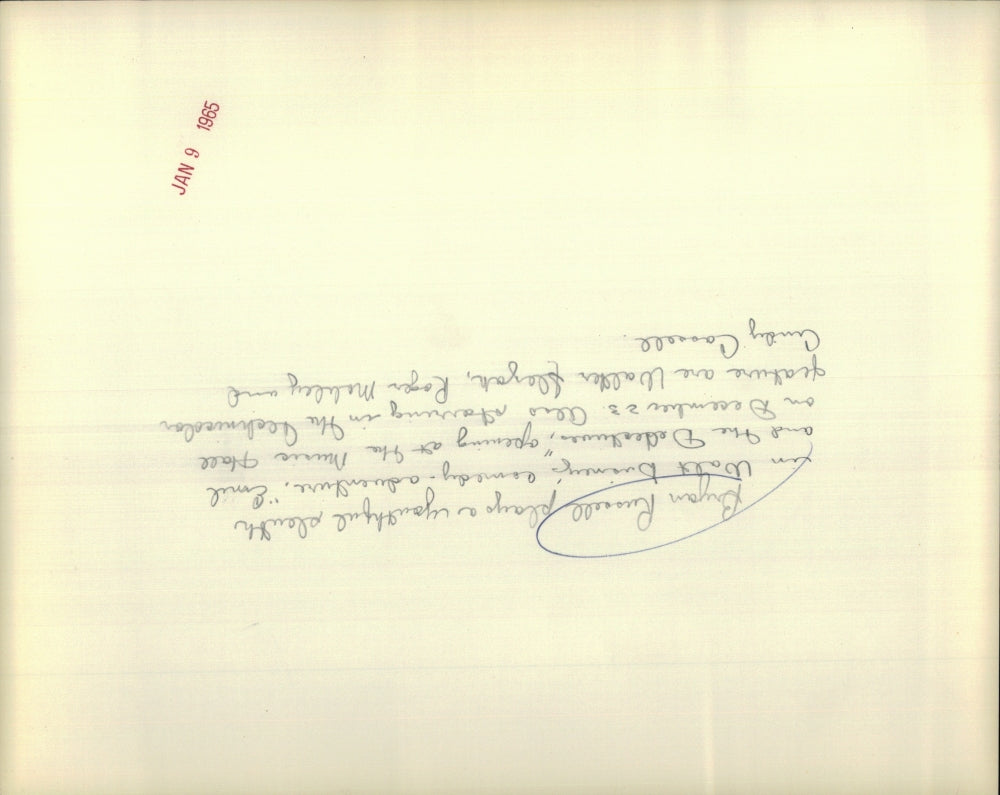 JAN 9 1965
Bryan Russell plays a youthful sleuth
in Walt Disney's comedy-adventure, "Emil
and the Detectives," opening at the Music Hall
on December 23. Also starring in the Technicolor
feature are Walter Slezak, Roger Mobley and
Cindy Cassell.